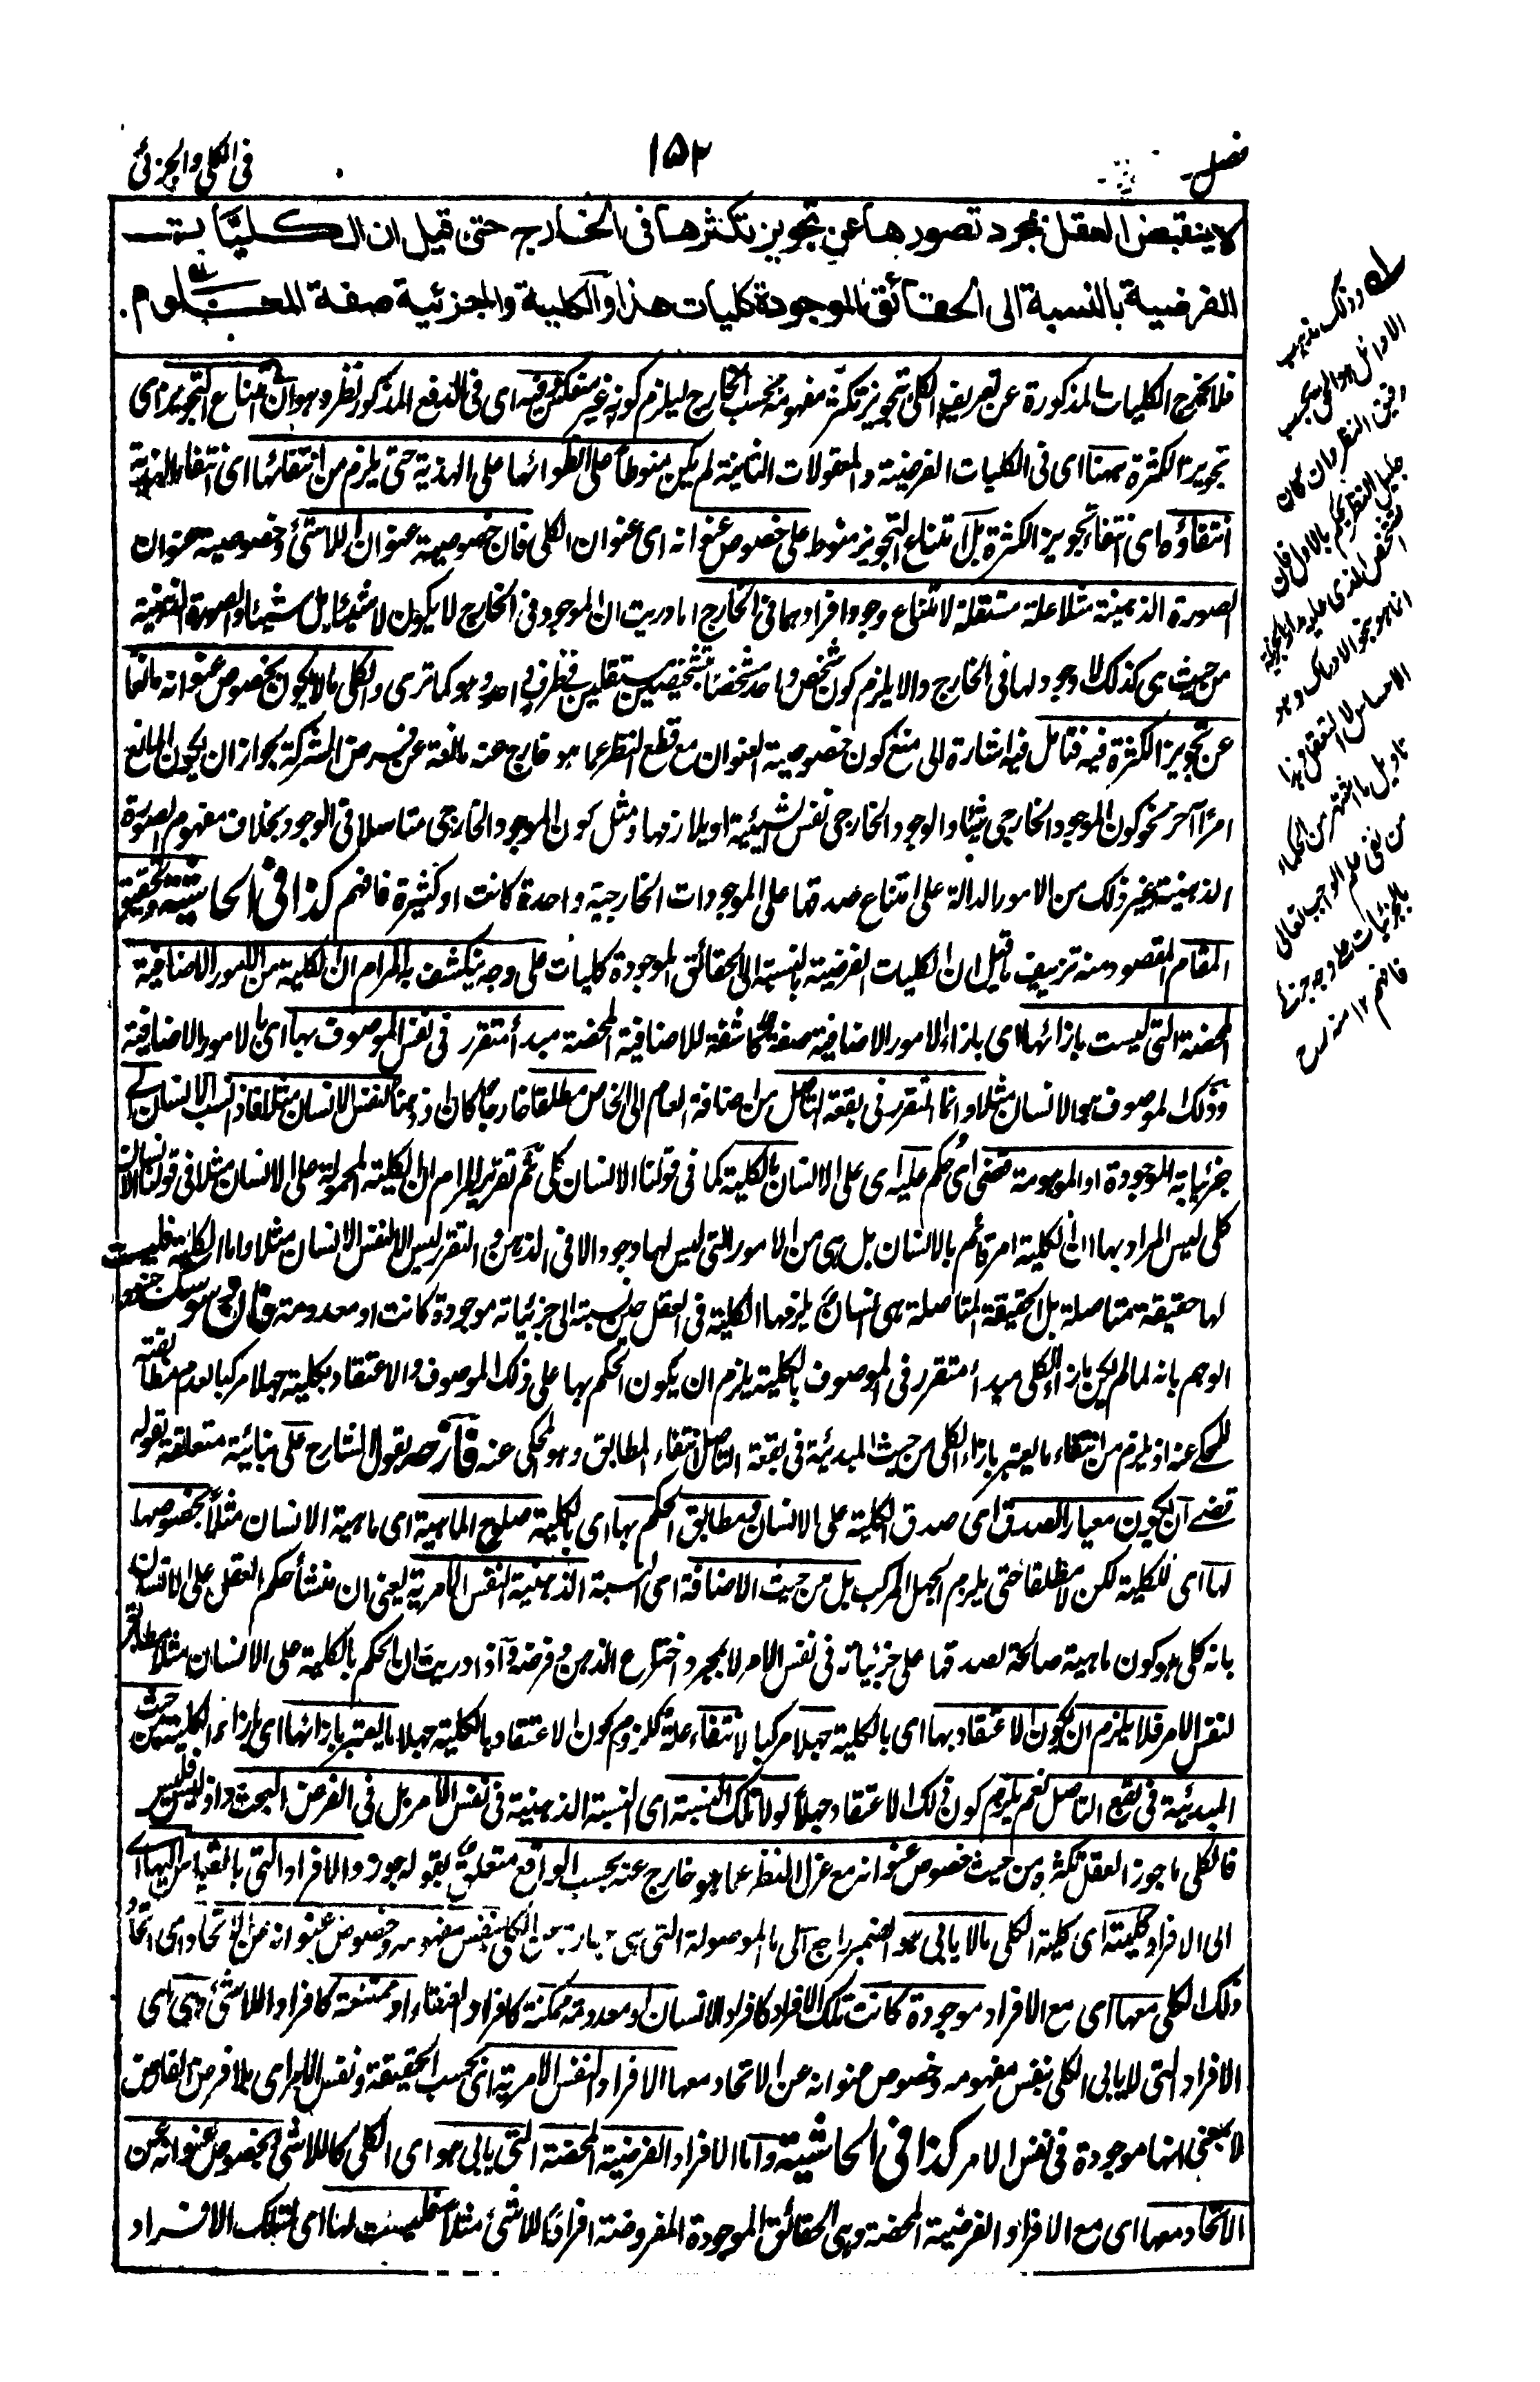 فصل
١٥٢
فى الكلى والجزئى
لا ينقبض العقل بمجرد تصورها عن تجويز تكثرها فى الخارج حتى قيل ان الكليات
الفرضية بالنسبة الى الحقائق الموجودة كليات هذا والكلية والجزئية صفة المعلوم.
فلا تخرج الكليات المذكورة عن تعريف الكلى بتجويز تكثر مفهومه بحسب الخارج ليلزم كونه غير منعكس فيه اى فى الدفع المذكور نظر وهو ان امتناع التجويز اى
تجويز الكثرة ههنا اى فى الكليات الفرضية والمعقولات الثانية لم يكن منوطا على انطوائها على الهذية حتى يلزم من انتفائها اى انتفاء الهذية
انتفاؤه اى انتفاء تجويز الكثرة بل امتناع التجويز منوط على خصوص عنوانه اى عنوان الكلى فان خصوصية عنوان اللاشئ وخصوصية عنوان
الصورة الذهنية مثلا علة مستقلة لامتناع وجود افرادهما فى الخارج اما دريت ان الموجود فى الخارج لا يكون لا شيئا بل شيئا والصورة الذهنية
من حيث هى كذلك لا وجود لها فى الخارج والا يلزم كون شخص واحد مشخصا بتشخصين مستقلين فى ظرف واحد وهو كما ترى والكلى ما لا يكون بخصوص عنوانه مانعا
عن تجويز الكثرة فيه فتامل فيه اشارة الى منع كون خصوصية العنوان مع قطع النظر عما هو خارج عنه مانعة عن فرض الشركة بجواز ان يكون المانع
امرا آخر نحو كون الموجود الخارجى شيئا والوجود الخارجى نفس الشيئية او يلازمها ومثل كون الموجود الخارجى متاصلا فى الوجود بخلاف مفهوم الصورة
الذهنية وغير ذلك من الامور الدالة على امتناع صدقها على الموجودات الخارجية واحدة كانت او كثيرة فافهم كذا فى الحاشية وتحقيق
المقام المقصود منه تزييف ما قيل ان الكليات الفرضية بالنسبة الى الحقائق الموجودة كليات على وجه ينكشف به المرام ان الكلية من الامور الاضافية
المحضة التى ليست بازائها اى بازاء الامور الاضافية صفة كاشفة للاضافية المحضة مبدأ متقرر فى نفس الموصوف بها اى بالامور الاضافية
وذلك الموصوف هو الانسان مثلا وانما التقرر فى بقعة التاصل من اضافة العام الى الخاص مطلقا خارجا كان او ذهنا لنفس الانسان مثلا فاذا نسب الانسان الى
جزئياته الموجودة او الموهومة قضى اى حكم عليه اى على الانسان بالكلية كما فى قولنا الانسان كلى ثم تقرير المرام ان الكلية المحمولة على الانسان مثلا فى قولنا الانسان
كلى ليس المراد بها ان الكلية امر قائم بالانسان بل هى من الامور التى ليس لها وجود الا فى الذهن والتقرر ليس الا لنفس الانسان مثلا واما الكلية فليست
لها حقيقة متاصلة بل الحقيقة المتاصلة هى انسان يلزمها الكلية فى العقل حين نسبته الى جزئياته موجودة كانت او معدومة فان
الوهم بانه لما لم يكن بازاء الكلى مبدأ متقرر فى الموصوف بالكلية يلزم ان يكون الحكم بها على ذلك الموصوف والاعتقاد بكلية جهلا مركبا لعدم مطابقته
للمحكى عنه اذ يلزم من انتفاء ما يعتبر بازاء الكلى من حيث المبدئية فى بقعة التاصل انتفاء المطابق وهو المحكى عنه فازحه بقول الشارح على بنائية متعلقة بقوله
قضى ان يكون معيار الصدق اى صدق الكلية على الانسان ومطابق الحكم بها اى بالكلية صلوح الماهية اى ماهية الانسان مثلا بخصوصها
لها اى للكلية لكن لا مطلقا حتى يلزم الجهل المركب بل من حيث الاضافة اى النسبة الذهنية النفس الامرية يعنى ان منشأ حكم العقل على الانسان
بانه كلى هو كون ماهيته صالحة لصدقها على جزئياته فى نفس الامر لا بمجرد اختراع الذهن وفرضه واذا دريت ان الحكم بالكلية على الانسان مثلا مطابق
لنفس الامر فلا يلزم ان يكون الاعتقاد بها اى بالكلية جهلا مركبا لانتفاء علة للزوم كون الاعتقاد بالكلية جهلا ما يعتبر بازائها اى بازاء الكلية من حيث
المبدئية فى بقع التاصل نعم يلزم كون ذلك الاعتقاد جهلا لولا تلك النسبة اى النسبة الذهنية فى نفس الامر بل فى الفرض البحت واذ ليس فليس
فالكلى ما جوز العقل تكثره من حيث خصوص عنوانه مع عزل النظر عما هو خارج عنه بحسب الواقع متعلق بقوله جوز والافراد التى بالقياس اليها اى
الى الافراد كلية اى كلية الكلى ما لا يابى هو الضمير راجع الى ما الموصولة التى هى عبارة عن الكلى بنفس مفهومه وخصوص عنوانه عن الاتحاد اى اتحاد
ذلك الكلى معها اى مع الافراد موجودة كانت تلك الافراد كافراد الانسان او معدومة ممكنة كافراد العنقاء او ممتنعة كافراد اللاشئ وهى اى
الافراد التى لا يابى الكلى بنفس مفهومه وخصوص عنوانه عن الاتحاد معها الافراد النفس الامرية اى بحسب الحقيقة ونفس الامر اى بلا فرض الفارض
لا بمعنى انها موجودة فى نفس الامر كذا فى الحاشية واما الافراد الفرضية المحضة التى يابى هو اى الكلى كاللاشئ بخصوص عنوانه عن
الاتحاد معها اى مع الافراد الفرضية المحضة وهى الحقائق الموجودة المفروضة افرادا للاشئ مثلا فليست لها اى لتلك الافراد
وذلك مذهب
الاوائل هو الحق بحسب
دقيق النظر وان كان
جليل النظر يحكم بالاول فان
التشخص الذى عليه مدار الجزئية
انما هو بنحو الادراك وهو
الاحساس لا التعقل وهذا
تاويل ما اشتهر من الحكماء
من نفى علم الواجب تعالى
بالجزئيات على وجه جزئى
فافهم ١٢ منه